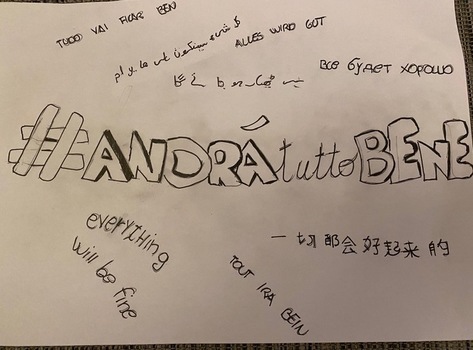 TUDO VAI FICAR BEN
ALLES WIRD GUT
все будет хорошо
#ANDRÁ tutto BENE
everything
will be fine
一切都会好起来的
TOUT IRA BEIN